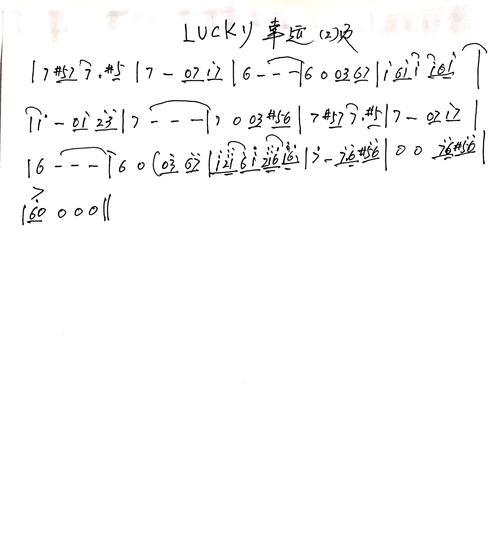 LUCKY 幸运 (2)页
| 7 #57 7 · #5 | 7 – 07 i7 | 6 – – – | 6 0 03 67 | i 6i i i6i |
| i – 0i 23 | 7 – – – | 7 0 03 #56 | 7 #57 7 · #5 | 7 – 07 i7 |
| 6 – – – | 6 0 (03 67 | i2i 6i 2i6 i6i | 7 – 76 #56 | 0 0 76 #56 |
>
| 60 0 0 0 ||